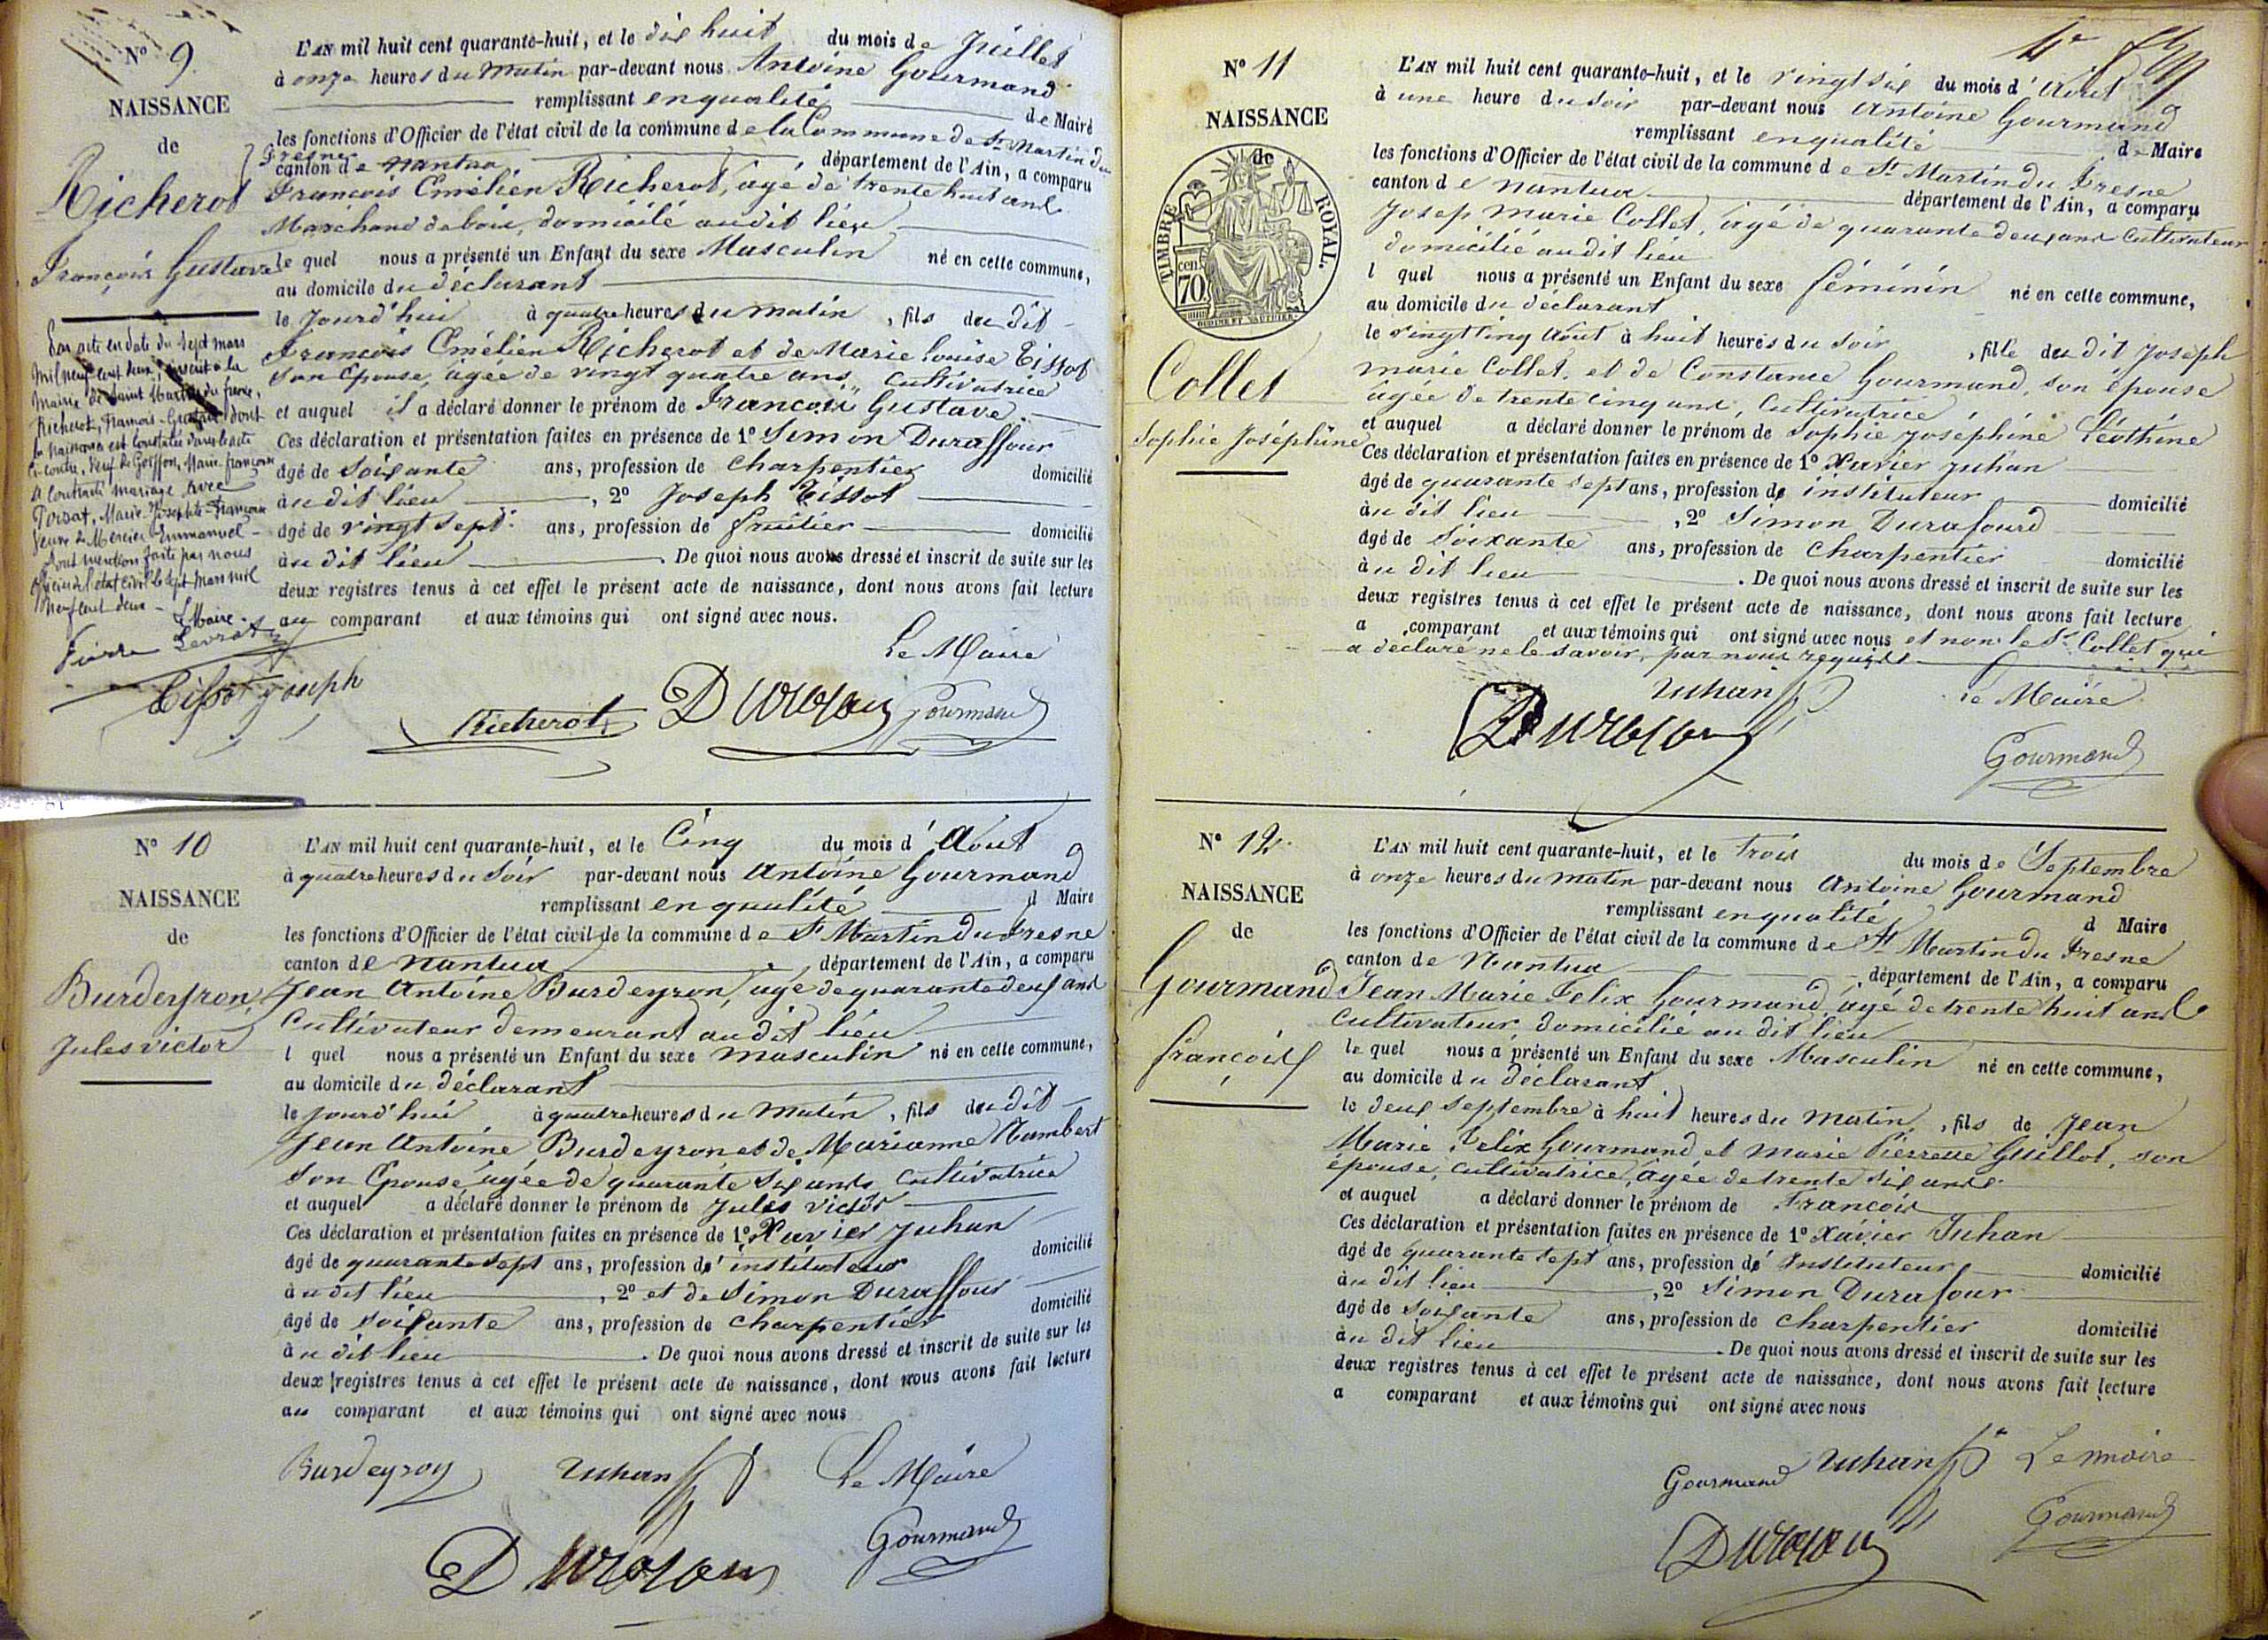 N° 9
NAISSANCE
de
Richerot
François Gustave
L'AN mil huit cent quarante-huit, et le dix huit du mois de Juillet
à onze heures du Matin par-devant nous Antoine Gourmand
remplissant en qualité de Maire
les fonctions d'Officier de l'état civil de la commune de la Commune de St Martin du
fresne
canton de Nantua département de l'Ain, a comparu
Francois Emélien Richerot, agé de trente huit ans
Marchand de bois, domicilé audit lieu
le quel nous a présenté un Enfant du sexe Masculin né en cette commune,
au domicile du déclarant
le jourd'hui à quatre heures du matin, fils du dit
Francois Emélien Richerot et de Marie Louise Tissot
Son Epouse, agée de vingt quatre ans, cultivatrice
et auquel il a déclaré donner le prénom de Francois Gustave
Ces déclaration et présentation faites en présence de 1° Simon Duraffour
âgé de Soixante ans, profession de Charpentier domicilié
audit lieu, 2° Joseph Tissot
âgé de vingt sept ans, profession de fruitier domicilié
au dit lieu. De quoi nous avons dressé et inscrit de suite sur les
deux registres tenus à cet effet le présent acte de naissance, dont nous avons fait lecture
au comparant et aux témoins qui ont signé avec nous.
Le Maire
Par acte en date du Sept mars
mil neuf cent deux, inscrit à la
Mairie de Saint Martin du fresne,
Richerot, Francois-Gustave dont
la naissance est constatée dans l'acte
ci-contre, veuf de Goiffon, Marie françoise
a contracté mariage avec
Torsat, Marie-Josephte-Françoise
Veuve de Mercier Emmanuel -
Dont mention faite par nous
Officier de l'état civil le sept mars mil
neuf cent deux -
Le Maire.
Pierre Levrat
Tissot joseph
Richerot
Durafour
Gourmand
N° 10
NAISSANCE
de
Burdeyron,
Jules victor
L'AN mil huit cent quarante-huit, et le Cinq du mois d'Aout
à quatre heures du Soir par-devant nous Antoine Gourmand
remplissant en qualité d Maire
les fonctions d'Officier de l'état civil de la commune de St Martin du Fresne
canton de Nantua, département de l'Ain, a comparu
Jean Antoine Burdeyron, agé de quarante deux ans
Cultivateur demeurant audit lieu
l quel nous a présenté un Enfant du sexe masculin né en cette commune,
au domicile du déclarant
le jourd'hui à quatre heures du Matin, fils du dit
Jean Antoine Burdeyron et de Marianne Humbert
Son Epouse agée de quarante six ans, cultivatrice
et auquel a déclaré donner le prénom de Jules victor
Ces déclaration et présentation faites en présence de 1° Xavier Juhan
âgé de quarante sept ans, profession d'instituteur domicilié
au dit lieu, 2° et de Simon Duraffour
âgé de soixante ans, profession de charpentier domicilié
au dit lieu. De quoi nous avons dressé et inscrit de suite sur les
deux registres tenus à cet effet le présent acte de naissance, dont nous avons fait lecture
au comparant et aux témoins qui ont signé avec nous
Burdeyron
Juhan
Le Maire
Durafour
Gourmand
N° 11
NAISSANCE
de
TIMBRE ROYAL.
cen. 70.
Collet
Sophie Joséphine
L'AN mil huit cent quarante-huit, et le vingt six du mois d'Aout
à une heure du soir par-devant nous Antoine Gourmand
remplissant en qualité de Maire
les fonctions d'Officier de l'état civil de la commune de St Martin du Fresne
canton de Nantua département de l'Ain, a comparu
Josep Marie Collet, agé de quarante deux ans cultivateur
domicilié audit lieu
l quel nous a présenté un Enfant du sexe féminin né en cette commune,
au domicile du déclarant
le vingt cinq Aout à huit heures du soir, fille du dit Joseph
marie Collet, et de Constance Gourmand, son épouse
agée de trente cinq ans, cultivatrice
et auquel a déclaré donner le prénom de Sophie joséphine Léothine
Ces déclaration et présentation faites en présence de 1° Xavier Juhan
âgé de quarante sept ans, profession d instituteur domicilié
au dit lieu, 2° Simon Durafourd
âgé de Soixante ans, profession de Charpentier domicilié
au dit lieu. De quoi nous avons dressé et inscrit de suite sur les
deux registres tenus à cet effet le présent acte de naissance, dont nous avons fait lecture
a comparant et aux témoins qui ont signé avec nous et non le Sr Collet qui
a déclaré ne le savoir, par nous requist
Juhan
le Maire
Durafour
Gourmand
N° 12.
NAISSANCE
de
Gourmand
françois
L'AN mil huit cent quarante-huit, et le trois du mois de Septembre
à onze heures du matin par-devant nous Antoine Gourmand
remplissant en qualité d Maire
les fonctions d'Officier de l'état civil de la commune de St Martin du Fresne
canton de Nantua, département de l'Ain, a comparu
Jean Marie Felix Gourmand, agé de trente huit ans
Cultivateur domicilié au dit lieu
le quel nous a présenté un Enfant du sexe Masculin né en cette commune,
au domicile du déclarant
le deux septembre à huit heures du Matin, fils de Jean
Marie Felix Gourmand et marie Pierrette Guillot, son
épouse, cultivatrice, agée de trente six ans
et auquel a déclaré donner le prénom de François
Ces déclaration et présentation faites en présence de 1° Xavier Juhan
âgé de quarante sept ans, profession d'Instituteur domicilié
au dit lieu, 2° Simon Durafour
âgé de soixante ans, profession de Charpentier domicilié
au dit lieu. De quoi nous avons dressé et inscrit de suite sur les
deux registres tenus à cet effet le présent acte de naissance, dont nous avons fait lecture
a comparant et aux témoins qui ont signé avec nous
Gourmand
Juhan
Le maire
Durafour
Gourmand